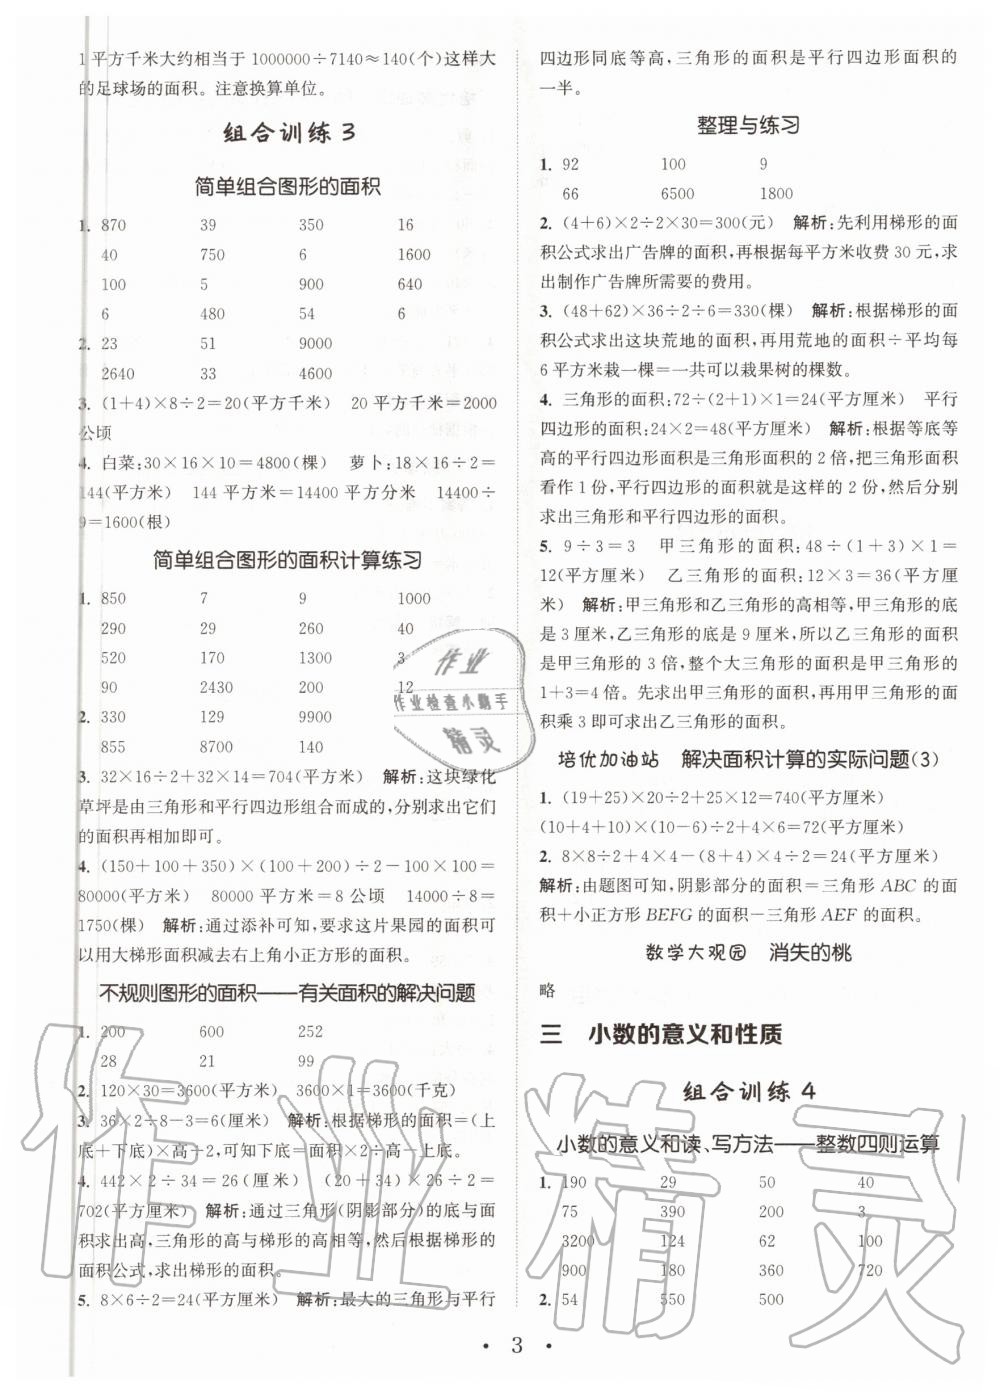 1平方千米大约相当于1000000÷7140≈140(个)这样大
的足球场的面积。注意换算单位。
组合训练3
简单组合图形的面积
1. 870 39 350 16
40 750 6 1600
100 5 900 640
6 480 54 6
2. 23 51 9000
2640 33 4600
3. (1+4)×8÷2=20(平方千米) 20平方千米=2000
公顷
4. 白菜:30×16×10=4800(棵) 萝卜:18×16÷2=
144(平方米) 144平方米=14400平方分米 14400÷
9=1600(根)
简单组合图形的面积计算练习
1. 850 7 9 1000
290 29 260 40
520 170 1300 3
90 2430 200 12
2. 330 129 9900
855 8700 140
3. 32×16÷2+32×14=704(平方米) 解析:这块绿化
草坪是由三角形和平行四边形组合而成的,分别求出它们
的面积再相加即可。
4. (150+100+350)×(100+200)÷2-100×100=
80000(平方米) 80000平方米=8公顷 14000÷8=
1750(棵) 解析:通过添补可知,要求这片果园的面积可
以用大梯形面积减去右上角小正方形的面积。
不规则图形的面积——有关面积的解决问题
1. 200 600 252
28 21 99
2. 120×30=3600(平方米) 3600×1=3600(千克)
3. 36×2÷8-3=6(厘米) 解析:根据梯形的面积=(上
底+下底)×高÷2,可得下底=面积×2÷高-上底。
4. 442×2÷34=26(厘米) (20+34)×26÷2=
702(平方厘米) 解析:通过三角形(阴影部分)的底与面
积求出高,三角形的高与梯形的高相等,然后根据梯形的
面积公式,求出梯形的面积。
5. 8×6÷2=24(平方厘米) 解析:最大的三角形与平行
四边形同底等高,三角形的面积是平行四边形面积的
一半。
整理与练习
1. 92 100 9
66 6500 1800
2. (4+6)×2÷2×30=300(元) 解析:先利用梯形的面
积公式求出广告牌的面积,再根据每平方米收费30元,求
出制作广告牌所需要的费用。
3. (48+62)×36÷2÷6=330(棵) 解析:根据梯形的面
积公式求出这块荒地的面积,再用荒地的面积÷平均每
6平方米栽一棵=一共可以栽果树的棵数。
4. 三角形的面积:72÷(2+1)×1=24(平方厘米) 平行
四边形的面积:24×2=48(平方厘米) 解析:根据等底等
高的平行四边形面积是三角形面积的2倍,把三角形面积
看作1份,平行四边形的面积就是这样的2份,然后分别
求出三角形和平行四边形的面积。
5. 9÷3=3 甲三角形的面积:48÷(1+3)×1=
12(平方厘米) 乙三角形的面积:12×3=36(平方厘
米) 解析:甲三角形和乙三角形的高相等,甲三角形的底
是3厘米,乙三角形的底是9厘米,所以乙三角形的面积
是甲三角形的3倍,整个大三角形的面积是甲三角形的
1+3=4倍。先求出甲三角形的面积,再用甲三角形的面
积乘3即可求出乙三角形的面积。
培优加油站 解决面积计算的实际问题(3)
1. (19+25)×20÷2+25×12=740(平方厘米)
(10+4+10)×(10-6)÷2+4×6=72(平方厘米)
2. 8×8÷2+4×4-(8+4)×4÷2=24(平方厘米)
解析:由题图可知,阴影部分的面积=三角形ABC的面
积+小正方形BEFG的面积-三角形AEF的面积。
数学大观园 消失的桃
略
三 小数的意义和性质
组合训练4
小数的意义和读、写方法——整数四则运算
1. 190 29 50 40
75 390 200 3
3200 124 62 100
900 180 360 720
2. 54 550 500
· 3 ·
作业
作业检查小助手
精灵
作业精灵